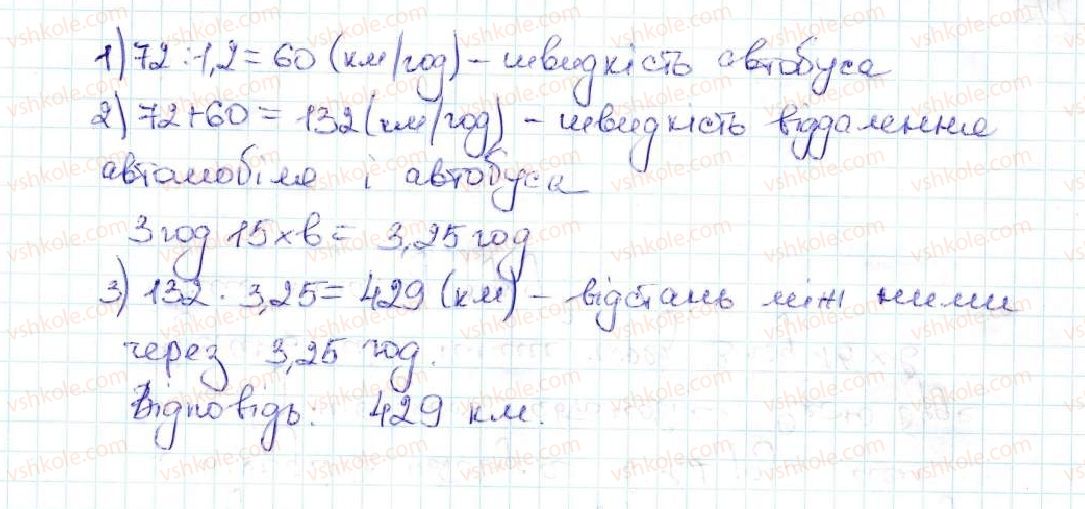 1) 72 : 1,2 = 60 (км/год) – швидкість автобуса
2) 72 + 60 = 132 (км/год) – швидкість віддалення
автомобіля і автобуса
3 год 15 хв = 3,25 год
3) 132 · 3,25 = 429 (км) – відстань між ними
через 3,25 год.
Відповідь: 429 км.
vshkole.com